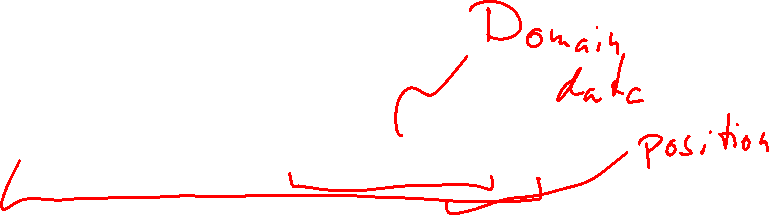 Domain
data
position